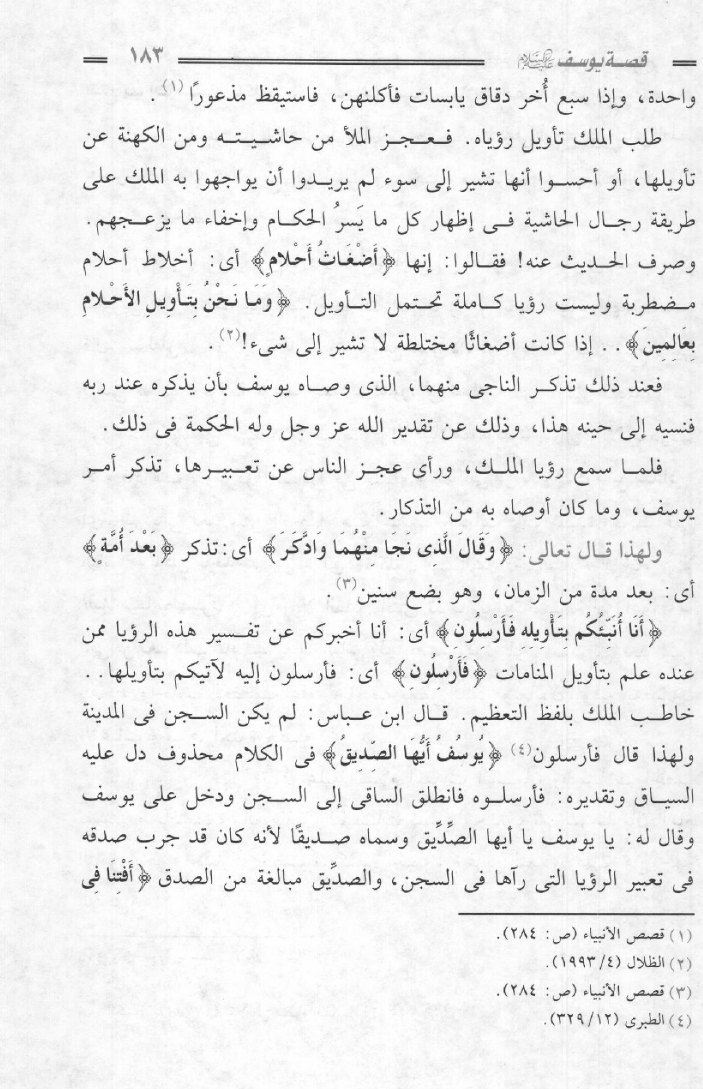 قصة يوسف عليه السلام ١٨٣
واحدة، وإذا سبع أُخر دقاق يابسات فأكلنهن، فاستيقظ مذعورًا (١).
طلب الملك تأويل رؤياه. فعجز الملأ من حاشيته ومن الكهنة عن
تأويلها، أو أحسوا أنها تشير إلى سوء لم يريدوا أن يواجهوا به الملك على
طريقة رجال الحاشية فى إظهار كل ما يَسرُ الحكام وإخفاء ما يزعجهم.
وصرف الحديث عنه! فقالوا: إنها ﴿أَضْغَاثُ أَحْلامٍ﴾ أى: أخلاط أحلام
مضطربة وليست رؤيا كاملة تحتمل التأويل. ﴿وَمَا نَحْنُ بِتَأْوِيلِ الأَحْلامِ
بِعَالِمِينَ﴾.. إذا كانت أضغاثًا مختلطة لا تشير إلى شىء!(٢).
فعند ذلك تذكر الناجى منهما، الذى وصاه يوسف بأن يذكره عند ربه
فنسيه إلى حينه هذا، وذلك عن تقدير الله عز وجل وله الحكمة فى ذلك.
فلما سمع رؤيا الملك، ورأى عجز الناس عن تعبيرها، تذكر أمر
يوسف، وما كان أوصاه به من التذكار.
ولهذا قال تعالى: ﴿وَقَالَ الَّذِى نَجَا مِنْهُمَا وَادَّكَرَ﴾ أى: تذكر ﴿بَعْدَ أُمَّةٍ﴾
أى: بعد مدة من الزمان، وهو بضع سنين(٣).
﴿أَنَا أُنَبِّئُكُم بِتَأْوِيلِهِ فَأَرْسِلُونِ﴾ أى: أنا أخبركم عن تفسير هذه الرؤيا ممن
عنده علم بتأويل المنامات ﴿فَأَرْسِلُونِ﴾ أى: فأرسلون إليه لآتيكم بتأويلها..
خاطب الملك بلفظ التعظيم. قال ابن عباس: لم يكن السجن فى المدينة
ولهذا قال فأرسلون(٤) ﴿يُوسُفُ أَيُّهَا الصِّدِّيقُ﴾ فى الكلام محذوف دل عليه
السياق وتقديره: فأرسلوه فانطلق الساقى إلى السجن ودخل على يوسف
وقال له: يا يوسف يا أيها الصِّدِّيق وسماه صديقًا لأنه كان قد جرب صدقه
فى تعبير الرؤيا التى رآها فى السجن، والصدِّيق مبالغة من الصدق ﴿أَفْتِنَا فِى
(١) قصص الأنبياء (ص: ٢٨٤).
(٢) الظلال (٤/ ١٩٩٣).
(٣) قصص الأنبياء (ص: ٢٨٤).
(٤) الطبرى (١٢/ ٣٢٩).